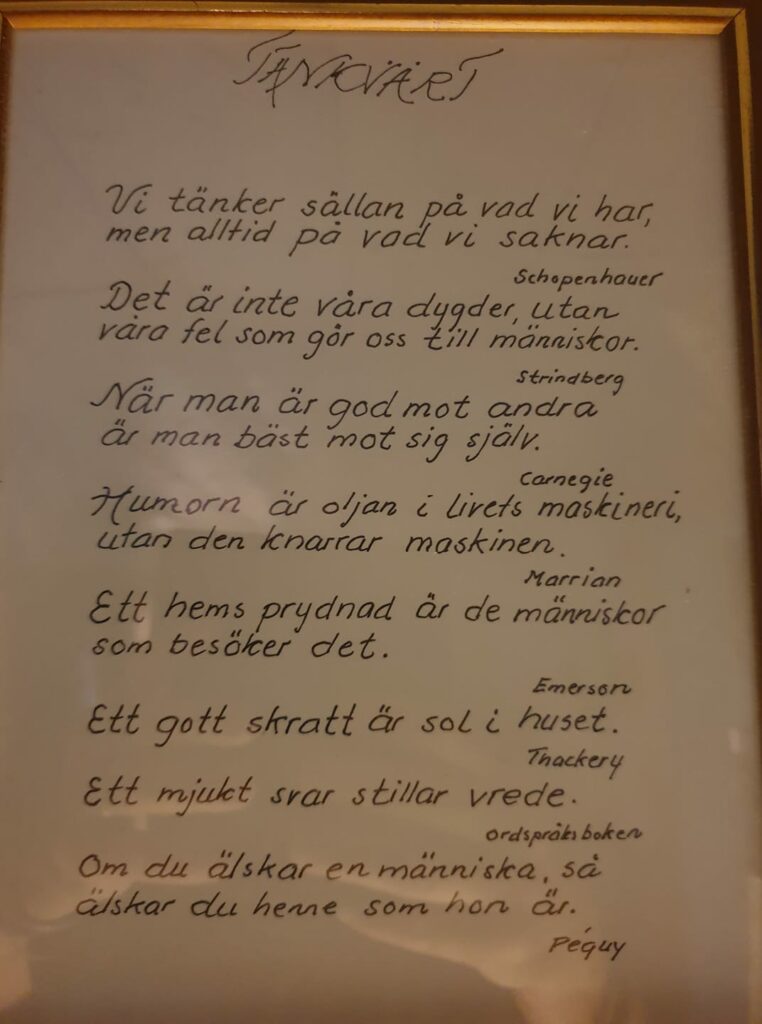 TÄNKVÄRT
Vi tänker sällan på vad vi har,
men alltid på vad vi saknar.
Schopenhauer
Det är inte våra dygder, utan
våra fel som gör oss till människor.
Strindberg
När man är god mot andra
är man bäst mot sig själv.
Carnegie
Humorn är oljan i livets maskineri,
utan den knarrar maskinen.
Marrian
Ett hems prydnad är de människor
som besöker det.
Emerson
Ett gott skratt är sol i huset.
Thackery
Ett mjukt svar stillar vrede.
ordspråksboken
Om du älskar en människa, så
älskar du henne som hon är.
Péguy